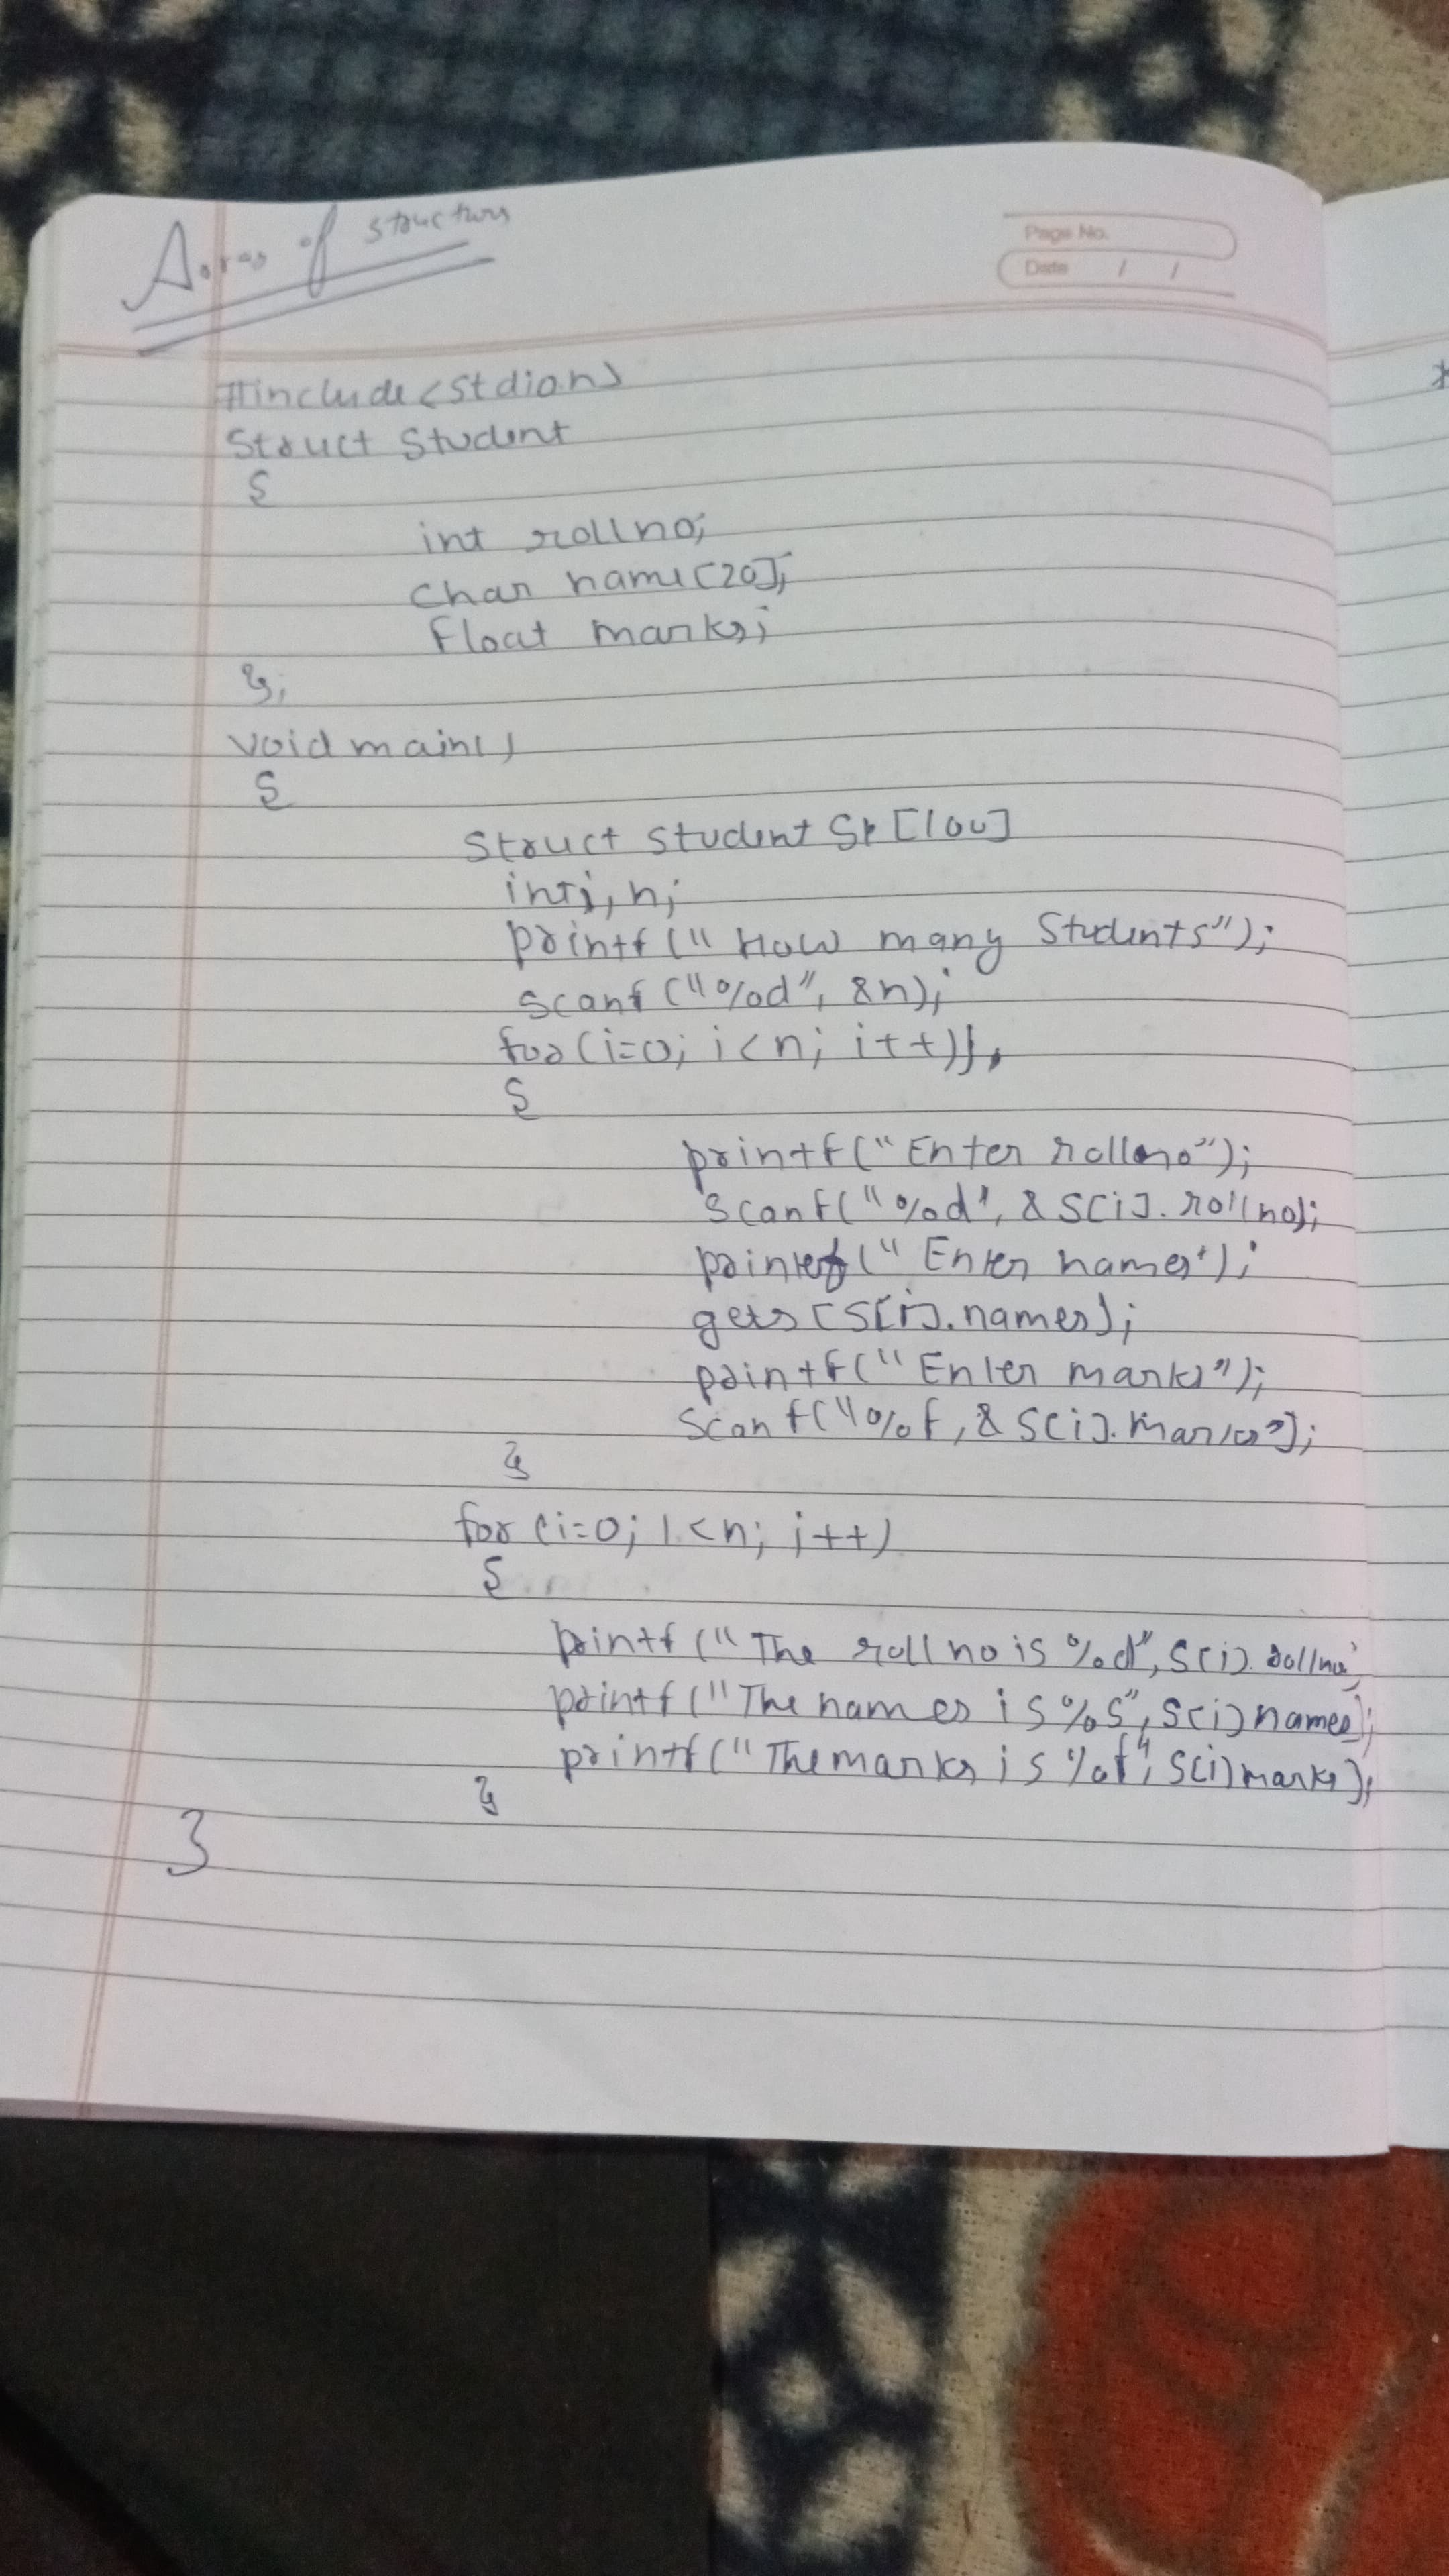 Array of structure
Page No.
Date / /
#include<stdio.h>
Struct Student
{
int rollno;
char name[20];
float marks;
};
void main()
{
Struct student S[100]
int i, n;
printf("How many Students");
scanf("%d", &n);
for(i=0; i<n; i++)
{
printf("Enter rollno");
scanf("%d", &S[i].rollno);
printf("Enter names");
gets(S[i].names);
printf("Enter marks");
scanf("%f, &S[i].marks");
}
for(i=0; i<n; i++)
{
printf("The rollno is %d", S[i].rollno)
printf("The names is %s", S[i]names);
printf("The marks is %f", S[i]marks);
}
}